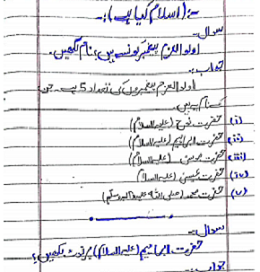 :۔(اسلام کیا ہے)۔:
سوال۔
اولوالعزم پیغمبر کونسے ہیں، نام لکھیں۔
جواب:۔
اولوالعزم پیغمبروں کی تعداد 5 ہے جن
کے نام یہ ہیں۔
(i) حضرت نوح (علیہ السلام)
(ii) حضرت ابراہیم (علیہ السلام)
(iii) حضرت موسیٰ (علیہ السلام)
(iv) حضرت عیسیٰ (علیہ السلام)
(v) حضرت محمد (صلی اللہ علیہ وآلہ وسلم)
سوال:۔
حضرت ابراہیم (علیہ السلام) پر نوٹ لکھیں؟
جواب:۔